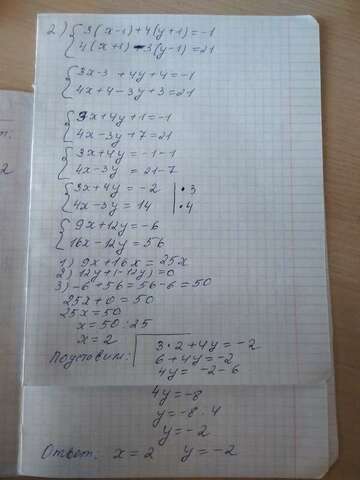 2) { 3(x-1)+4(y+1)=-1
4(x+1)-3(y-1)=21
{ 3x-3+4y+4=-1
4x+4-3y+3=21
{ 3x+4y+1=-1
4x-3y+7=21
{ 3x+4y=-1-1
4x-3y=21-7
{ 3x+4y=-2 | •3
4x-3y=14 | •4
{ 9x+12y=-6
16x-12y=56
1) 9x+16x=25x
2) 12y+(-12y)=0
3) -6+56=56-6=50
25x+0=50
25x=50
x=50:25
x=2
Подставим:
3•2+4y=-2
6+4y=-2
4y=-2-6
4y=-8
y=-8:4
y=-2
Ответ: x=2 y=-2